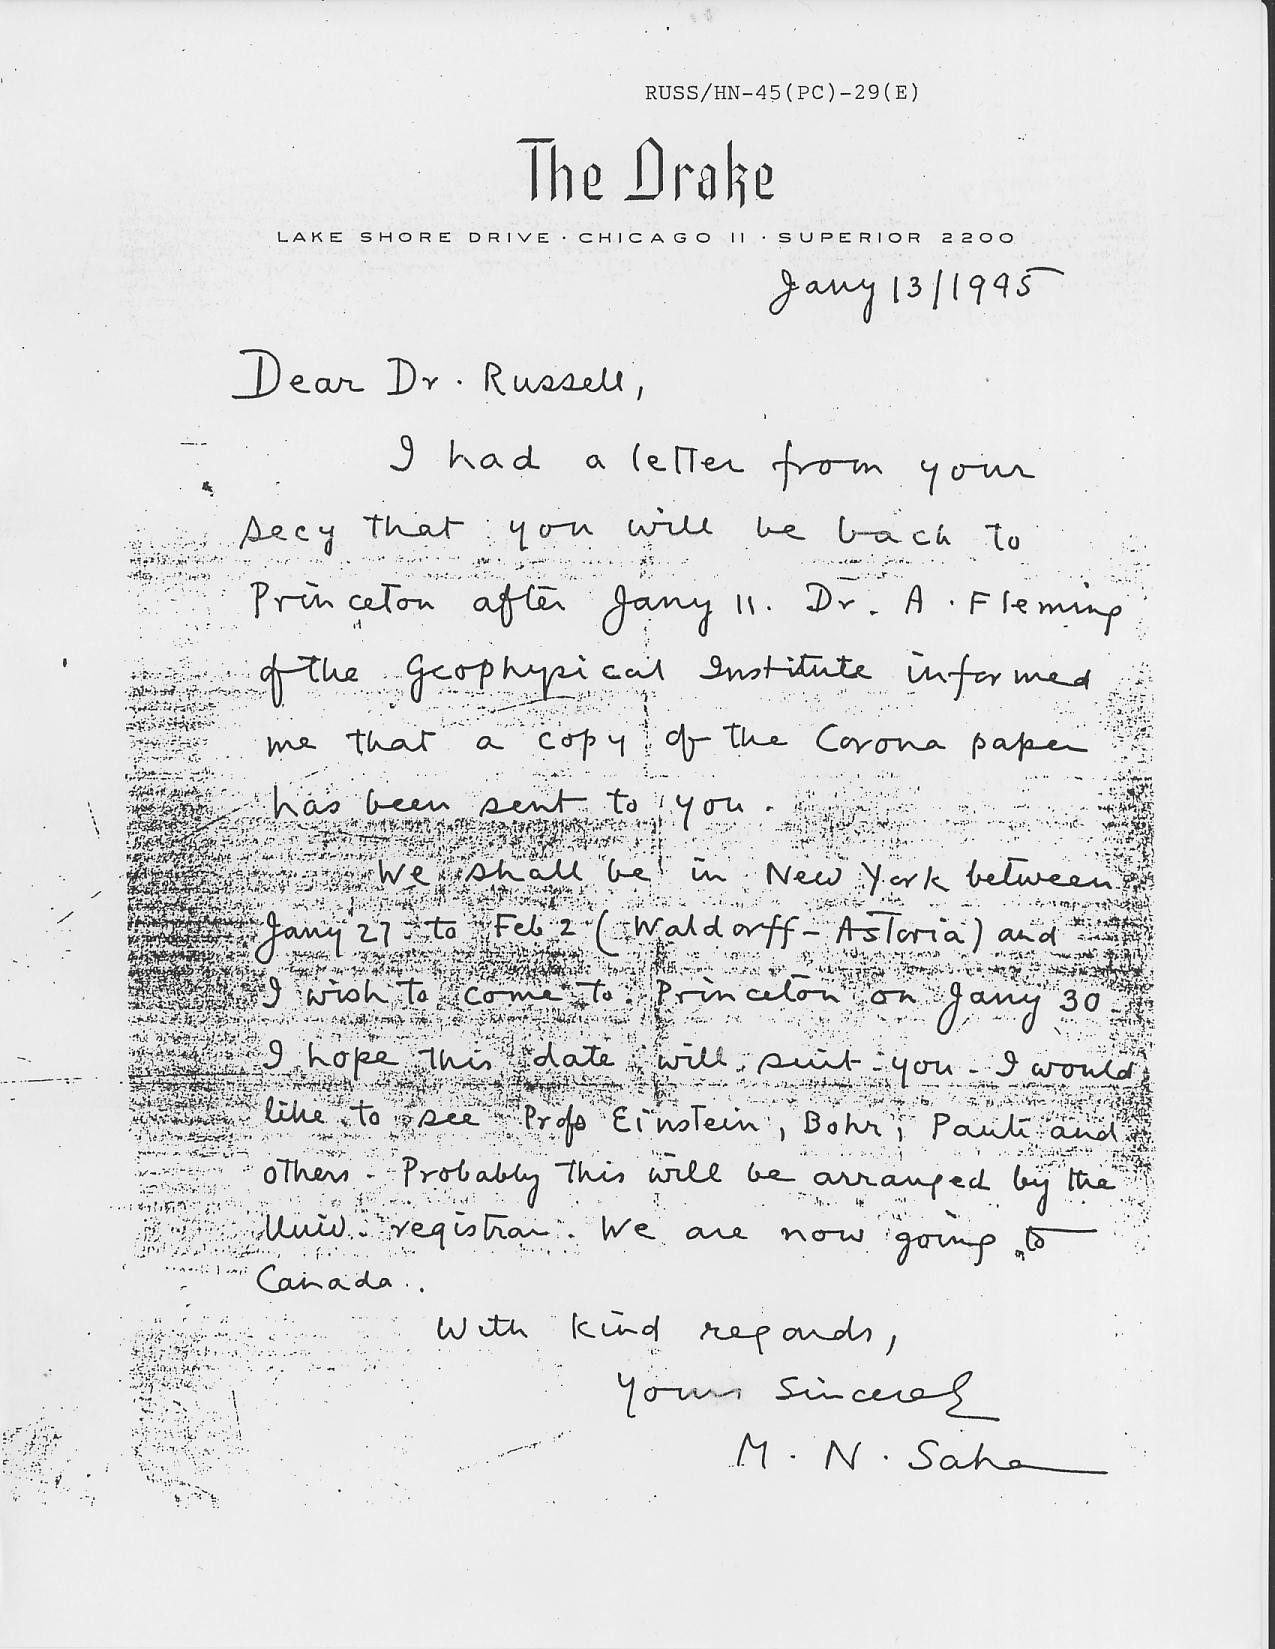 RUSS/HN-45(PC)-29(E)
The Drake
LAKE SHORE DRIVE · CHICAGO 11 · SUPERIOR 2200
Jany 13/1945
Dear Dr. Russell,
I had a letter from your
secy that you will be back to
Princeton after Jany 11. Dr. A. Fleming
of the Geophysical Institute informed
me that a copy of the Corona paper
has been sent to you.
We shall be in New York between
Jany 27 to Feb 2 (Waldorff-Astoria) and
I wish to come to Princeton on Jany 30.
I hope this date will suit you. I would
like to see Profs Einstein, Bohr, Pauli and
others. Probably this will be arranged by the
Univ. registrar. We are now going to
Canada.
With kind regards,
Yours Sincerely
M. N. Saha